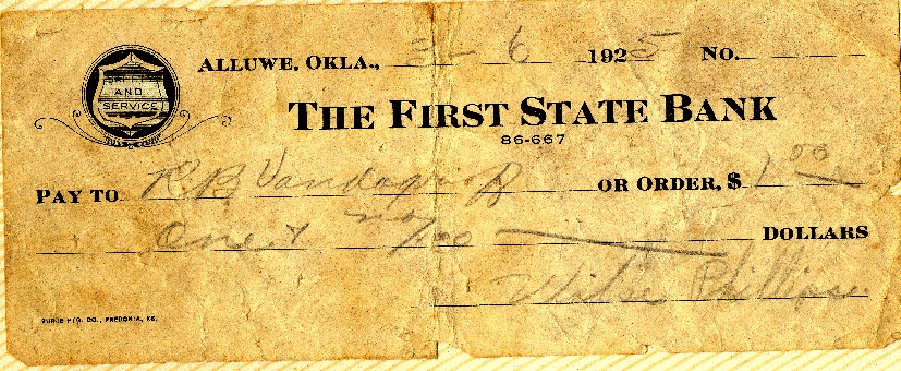 ALLUWE, OKLA., 3 - 6 1925 NO.
AND
SERVICE
THE FIRST STATE BANK
86-667
PAY TO R B Vandagriff OR ORDER, $ 1.00
One & no/100 DOLLARS
Willie Phillips
BURGE MFG. CO., FREDONIA, KS.